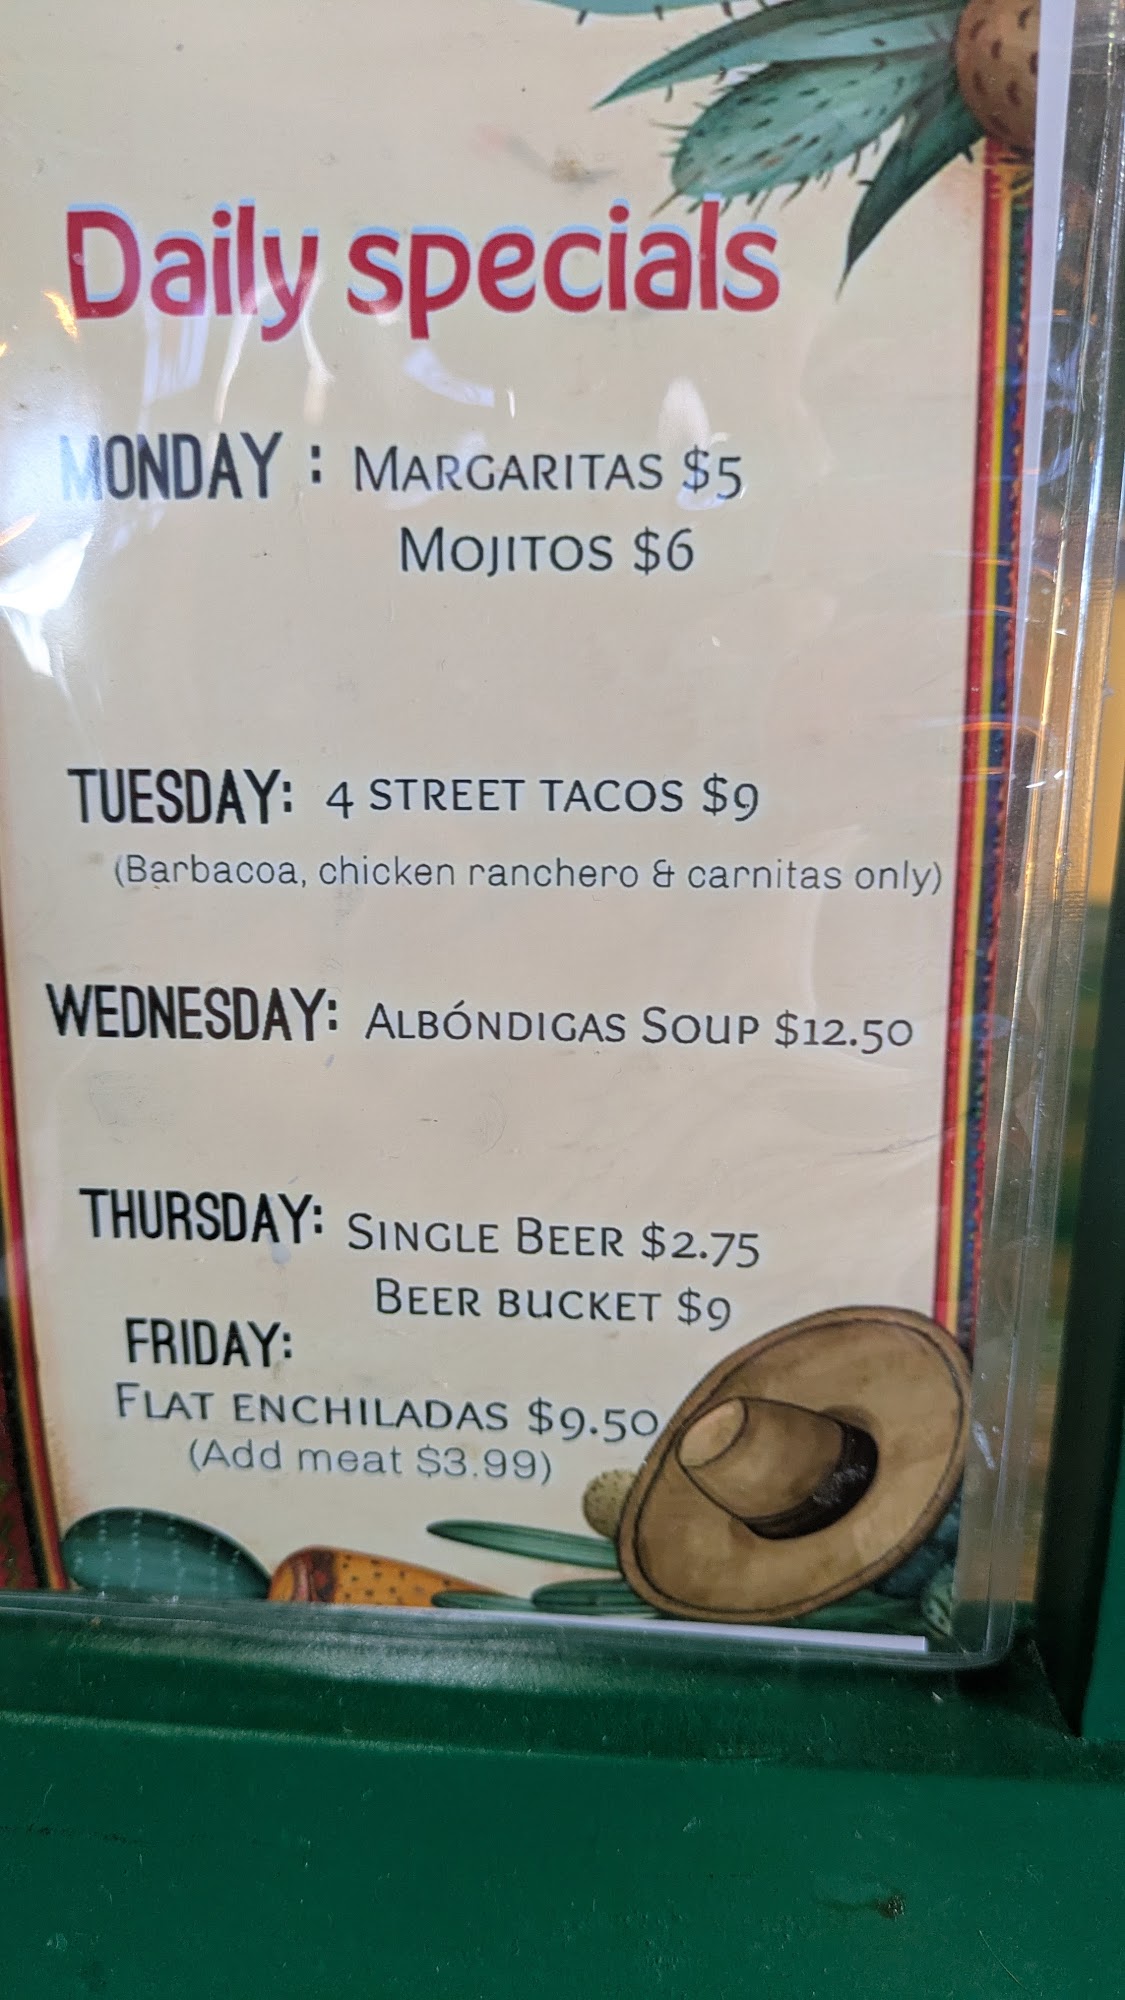 Daily specials
MONDAY : MARGARITAS $5
MOJITOS $6
TUESDAY: 4 STREET TACOS $9
(Barbacoa, chicken ranchero & carnitas only)
WEDNESDAY: ALBÓNDIGAS SOUP $12.50
THURSDAY: SINGLE BEER $2.75
BEER BUCKET $9
FRIDAY:
FLAT ENCHILADAS $9.50
(Add meat $3.99)